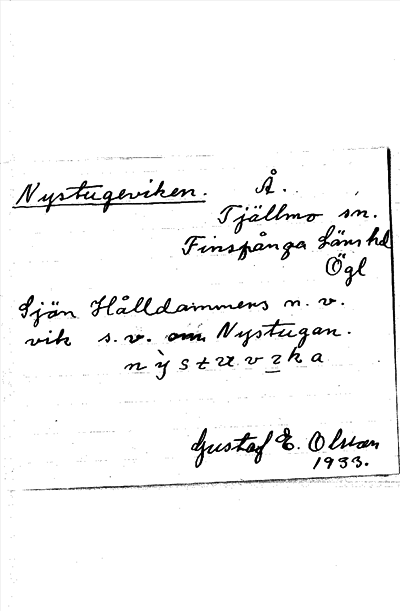 Nystugeviken. Å.
Tjällmo sn.
Finspånga läns hd
Ögl
Sjön Hålldammens n. v.
vik s. v. om Nystugan.
Gustaf E. Olsson
1933.